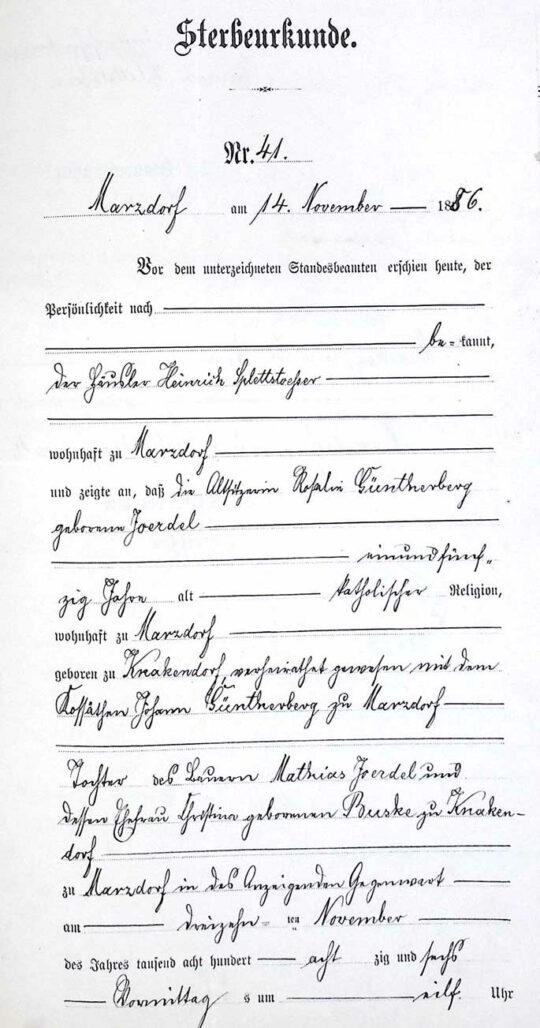 Sterbeurkunde.
Nr. 41.
Marzdorf am 14. November 1886.
Vor dem unterzeichneten Standesbeamten erschien heute, der
Persönlichkeit nach
be= kannt,
der Häusler Heinrich Splettstoesser
wohnhaft zu Marzdorf
und zeigte an, daß die Altsitzerin Rosalie Güntherberg
geborene Joerdel
einundfünf-
zig Jahre alt katholischer Religion,
wohnhaft zu Marzdorf
geboren zu Knakendorf, verheirathet gewesen mit dem
Kossäthen Johann Güntherberg zu Marzdorf
Tochter des Bauern Mathias Joerdel und
dessen Ehefrau Christina geborenen Buske zu Knaken-
dorf
zu Marzdorf in des Anzeigenden Gegenwart
am dreizehn ten November
des Jahres tausend acht hundert acht zig und sechs
Vormittag s um eilf. Uhr